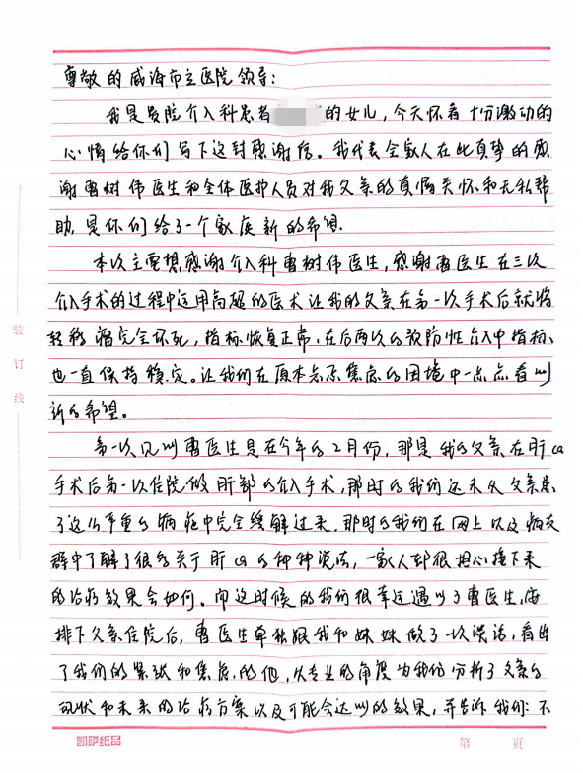 尊敬的威海市立医院领导：
我是贵院介入科患者 的女儿，今天怀着十分激动的
心情给你们写下这封感谢信。我代表全家人在此真挚的感
谢曹树伟医生和全体医护人员对我父亲的真情关怀和无私帮
助，是你们给了一个家庭新的希望.
本次主要想感谢介入科曹树伟医生，感谢曹医生在三次
介入手术的过程中运用高超的医术让我的父亲在第一次手术后就将
转移瘤完全坏死，指标恢复正常，在后两次的预防性介入中指标
也一直保持稳定。让我们在原本忐忑焦虑的困境中一点点看到
新的希望。
第一次见到曹医生是在今年的2月份，那是我的父亲在肝ca
手术后第一次住院做肝部的介入手术，那时的我们还未从父亲患
了这么严重的病症中完全缓解过来，那时的我们在网上以及病友
群中了解了很多关于肝ca的种种说法，一家人都很担心接下来
的治疗效果会如何。而这时候的我们很幸运遇到了曹医生，安
排下父亲住院后，曹医生单独跟我和妹妹做了一次谈话，看出
了我们的紧张和焦虑的他，从专业的角度为我们分析了父亲的
现状和未来的治疗方案以及可能会达到的效果，并告诉我们：不
装
订
线
凯萨纸品
第 页